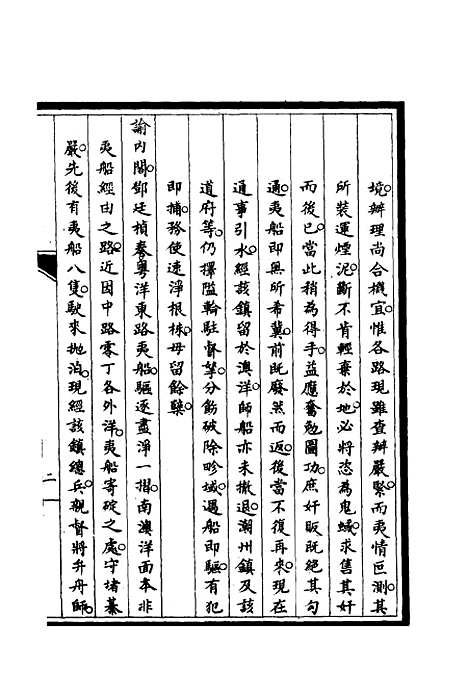 境辦理尚合機宜惟各路現雖查辦嚴緊而夷情叵測其
所裝運煙泥斷不肯輕棄於地必將恣為鬼蜮求售其奸
而後已當此稍為得手益應奮勉圖功庶奸販既絕其勾
通夷船即無所希冀前既廢然而返後當不復再來現在
通事引水經該鎮留於澳洋師船亦未撤退潮州鎮及該
道府等仍擇隘輪駐督率分飭破除畛域遇船即驅有犯
即捕務使速淨根株毋留餘孽
諭內閣鄧廷楨奏粵洋東路夷船驅逐盡淨一摺南澳洋面本非
夷船經由之路近因中路零丁各外洋夷船寄碇之處守堵綦
嚴先後有夷船八隻駛來拋泊現經該鎮總兵親督將弁舟師
二